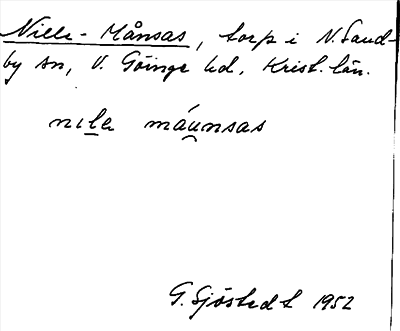 Nille-Månsas, torp i N. Sand-
by sn, V. Göinge hd, Krist. län.
nɪlə máu̯nsas
G. Sjöstedt 1952